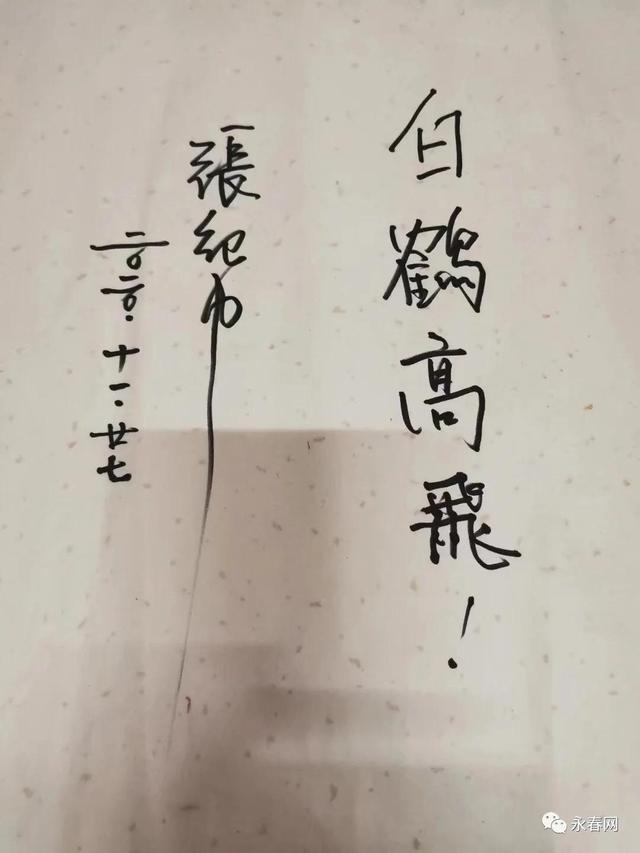 白鶴高飛！
張紀中
二〇二〇.十一.廿七
永春网